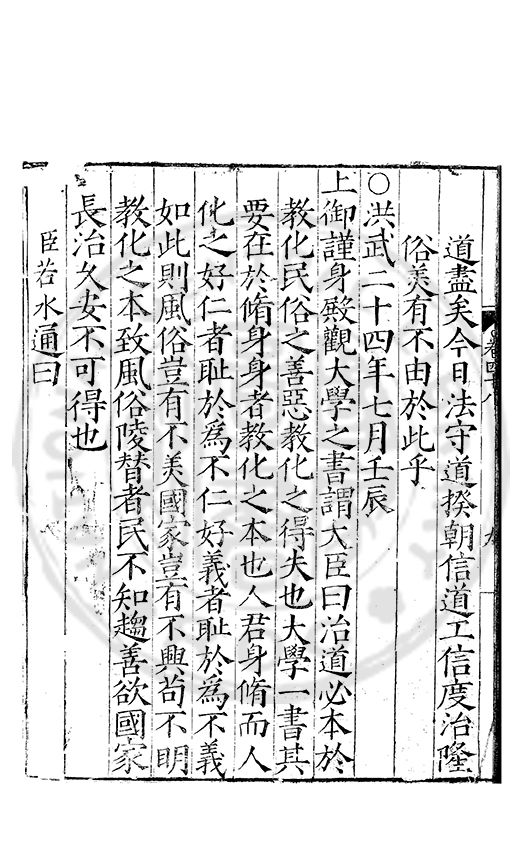 道盡矣今日法守道揆朝信道工信度治隆
俗美有不由於此乎
○洪武二十四年七月壬辰
上御謹身殿觀大學之書謂大臣曰治道必本於
教化民俗之善惡教化之得失也大學一書其
要在於脩身身者教化之本也人君身脩而人
化之好仁者耻於爲不仁好義者耻於爲不義
如此則風俗豈有不美國家豈有不興苟不明
教化之本致風俗陵替者民不知趨善欲國家
長治久安不可得也
臣若水通曰
卷四十八